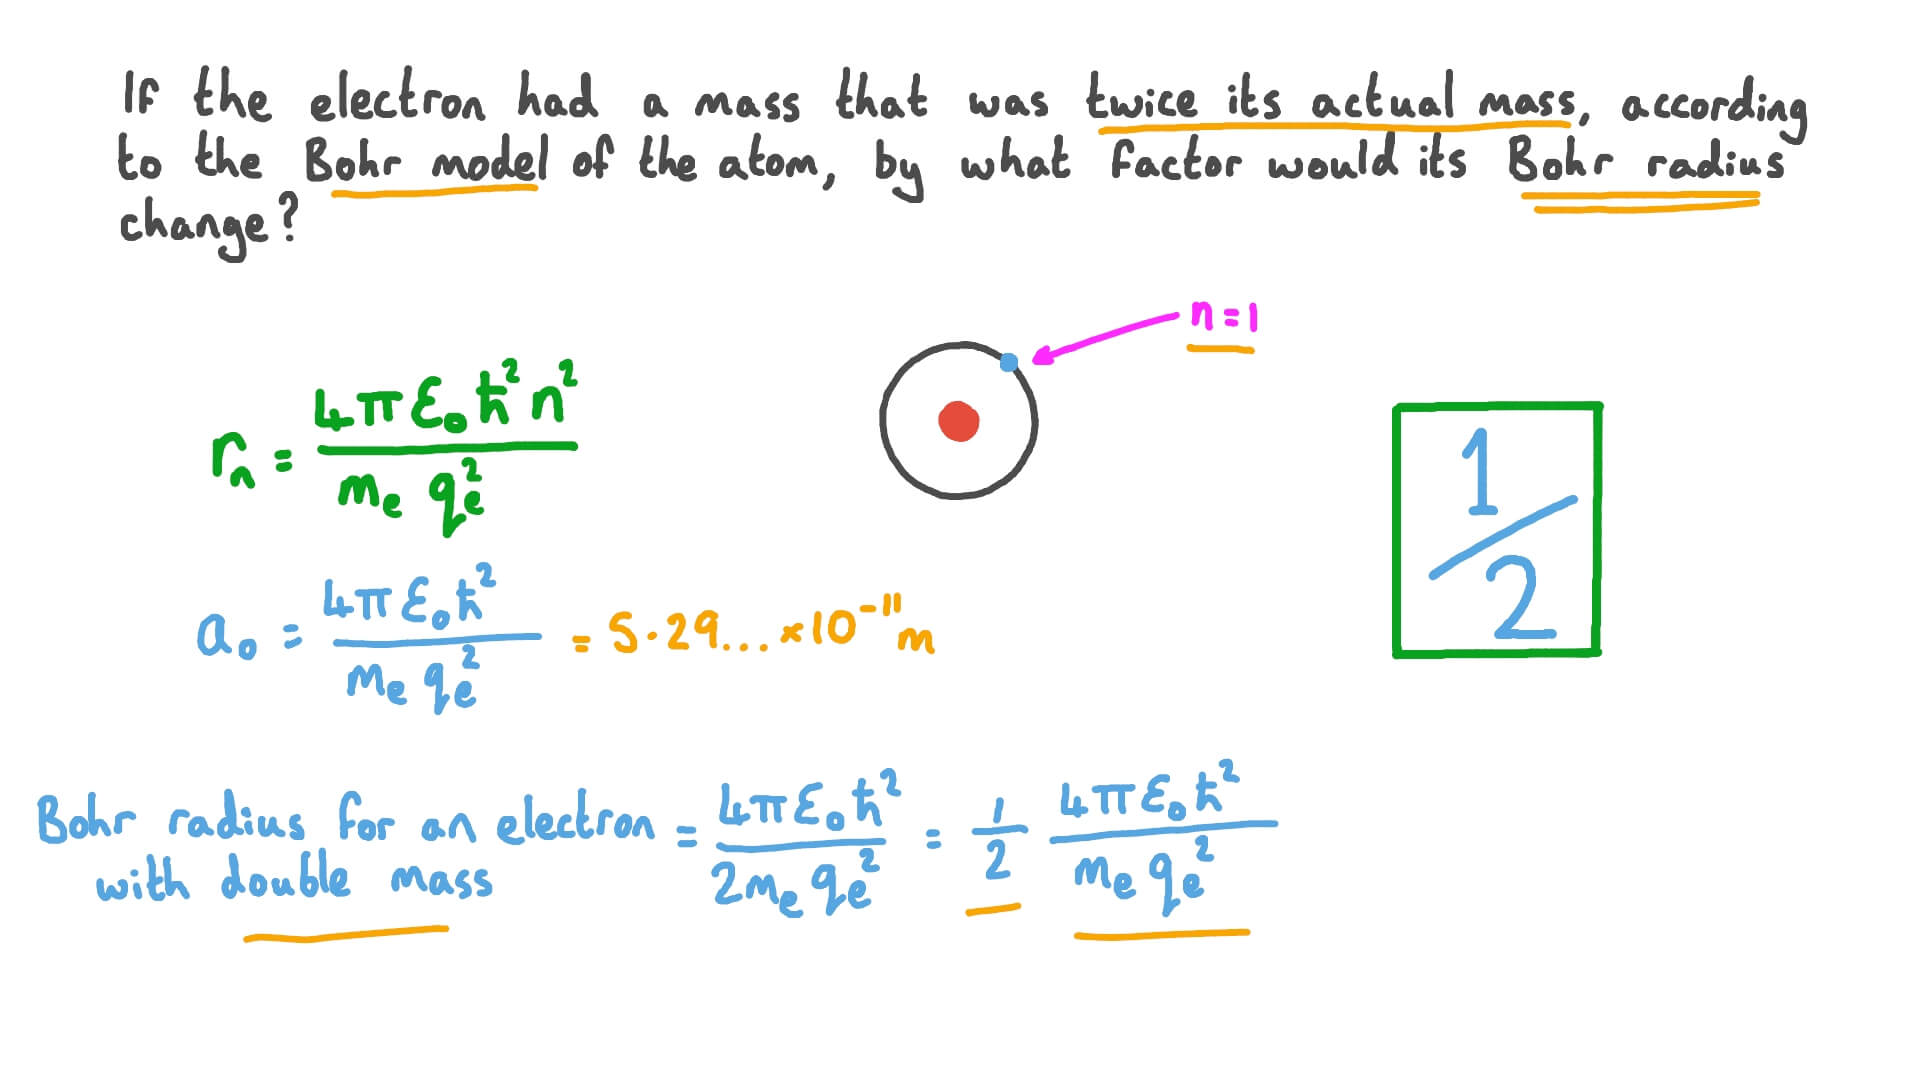 If the electron had a mass that was twice its actual mass, according
to the Bohr model of the atom, by what factor would its Bohr radius
change?
n=1
rₙ = 4πε₀ħ²n² / mₑqₑ²
1/2
a₀ = 4πε₀ħ² / mₑqₑ² = 5·29... ×10⁻¹¹ m
Bohr radius for an electron = 4πε₀ħ² / 2mₑqₑ² = 1/2 4πε₀ħ² / mₑqₑ²
with double mass